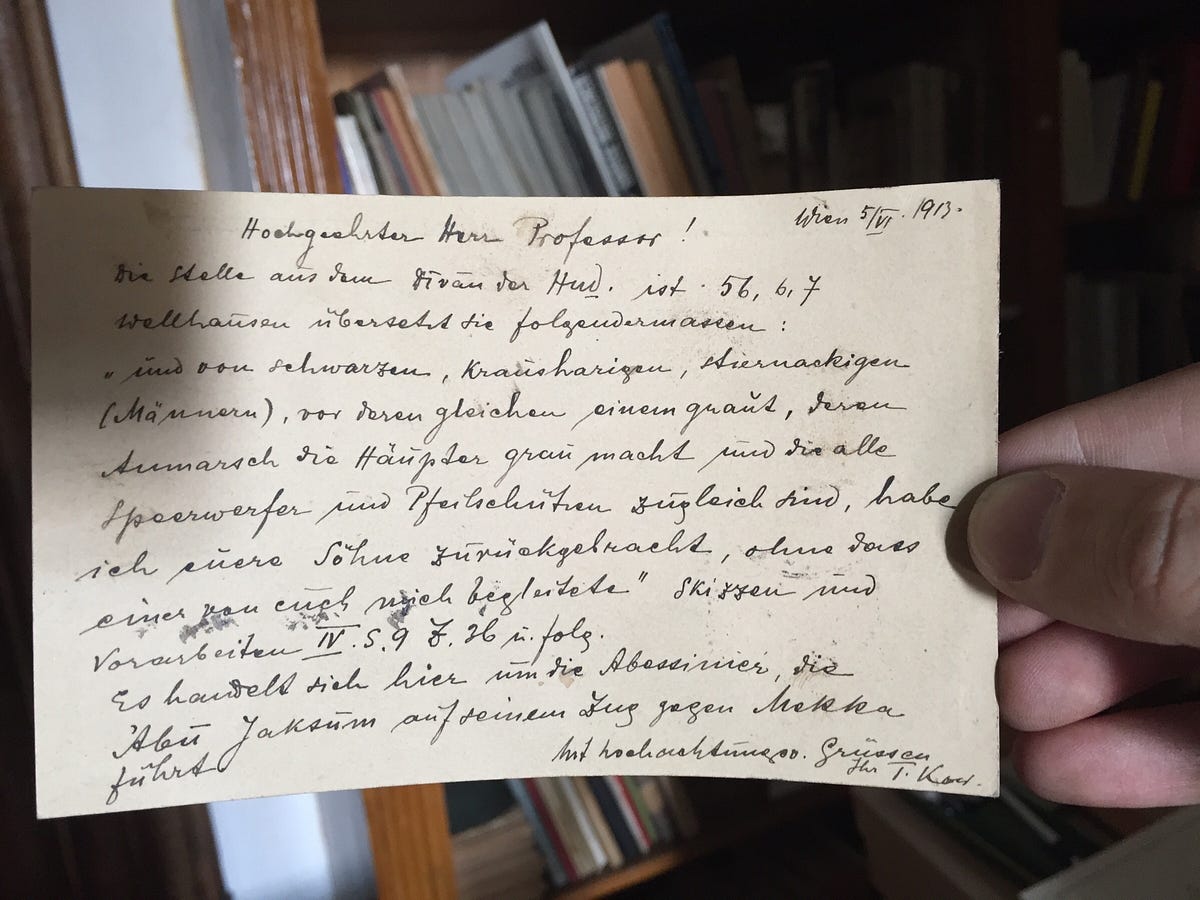 Wien 5/VI. 1913.
Hochgeehrter Herr Professor!
Die Stelle aus dem Dīvān der Huḏ. ist 56, 6, 7
Wellhausen übersetzt sie folgendermassen:
„und von schwarzen, krausharigen, stiernackigen
(Männern), vor deren gleichen einem graut, deren
Anmarsch die Häupter grau macht und die alle
Speerwerfer und Pfeilschützen zugleich sind, habe
ich euere Söhne zurückgebracht, ohne dass
einer von euch mich begleitete" Skizzen und
Vorarbeiten IV. S. 9 Z. 36 u. folg.
Es handelt sich hier um die Abessinier, die
'Abū Jaksūm auf seinem Zug gegen Mekka
führt
Mit hochachtungsv. Grüssen
Ihr T. Kow.